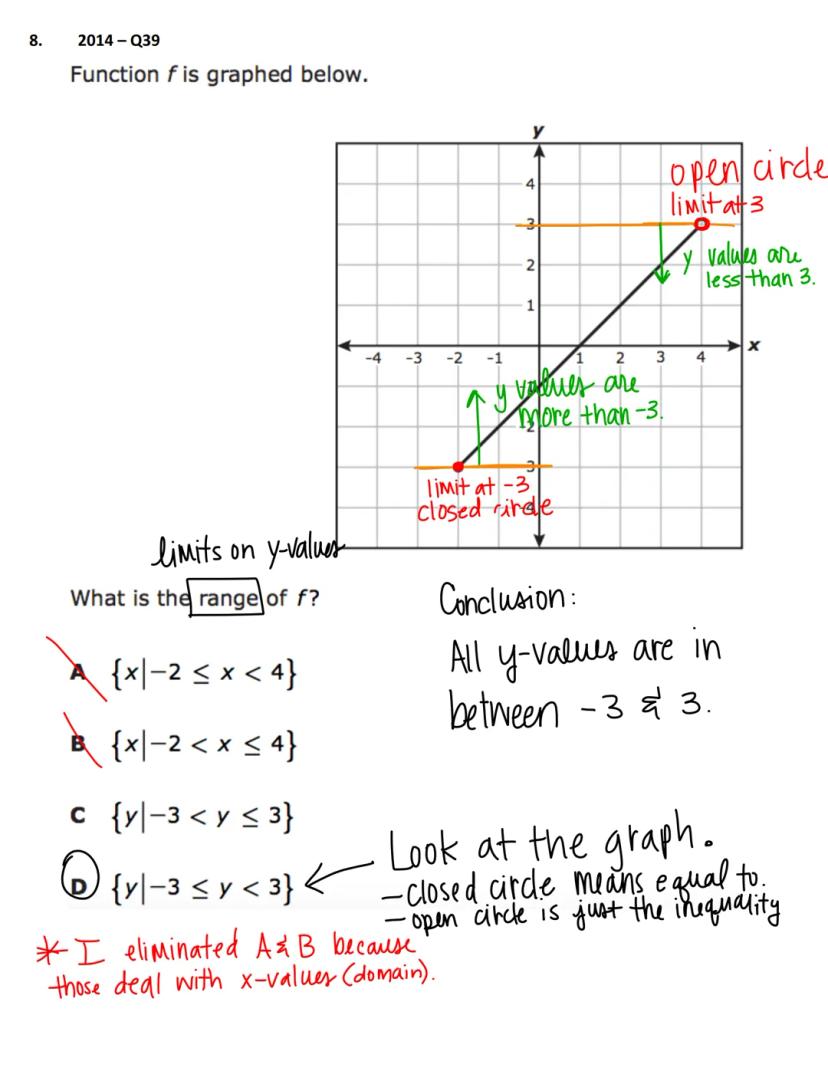 8. 2014 – Q39
Function f is graphed below.
y
open circle
limit at 3
4
3
2
1
y values are
less than 3.
x
-4 -3 -2 -1 1 2 3 4
y values are
more than -3.
2
3
limit at -3
closed circle
limits on y-values
What is the range of f?
Conclusion:
All y-values are in
between -3 & 3.
A {x|−2 ≤ x < 4}
B {x|−2 < x ≤ 4}
C {y|−3 < y ≤ 3}
D {y|−3 ≤ y < 3}
Look at the graph.
-closed circle means equal to.
- open circle is just the inequality
* I eliminated A & B because
those deal with x-values (domain).